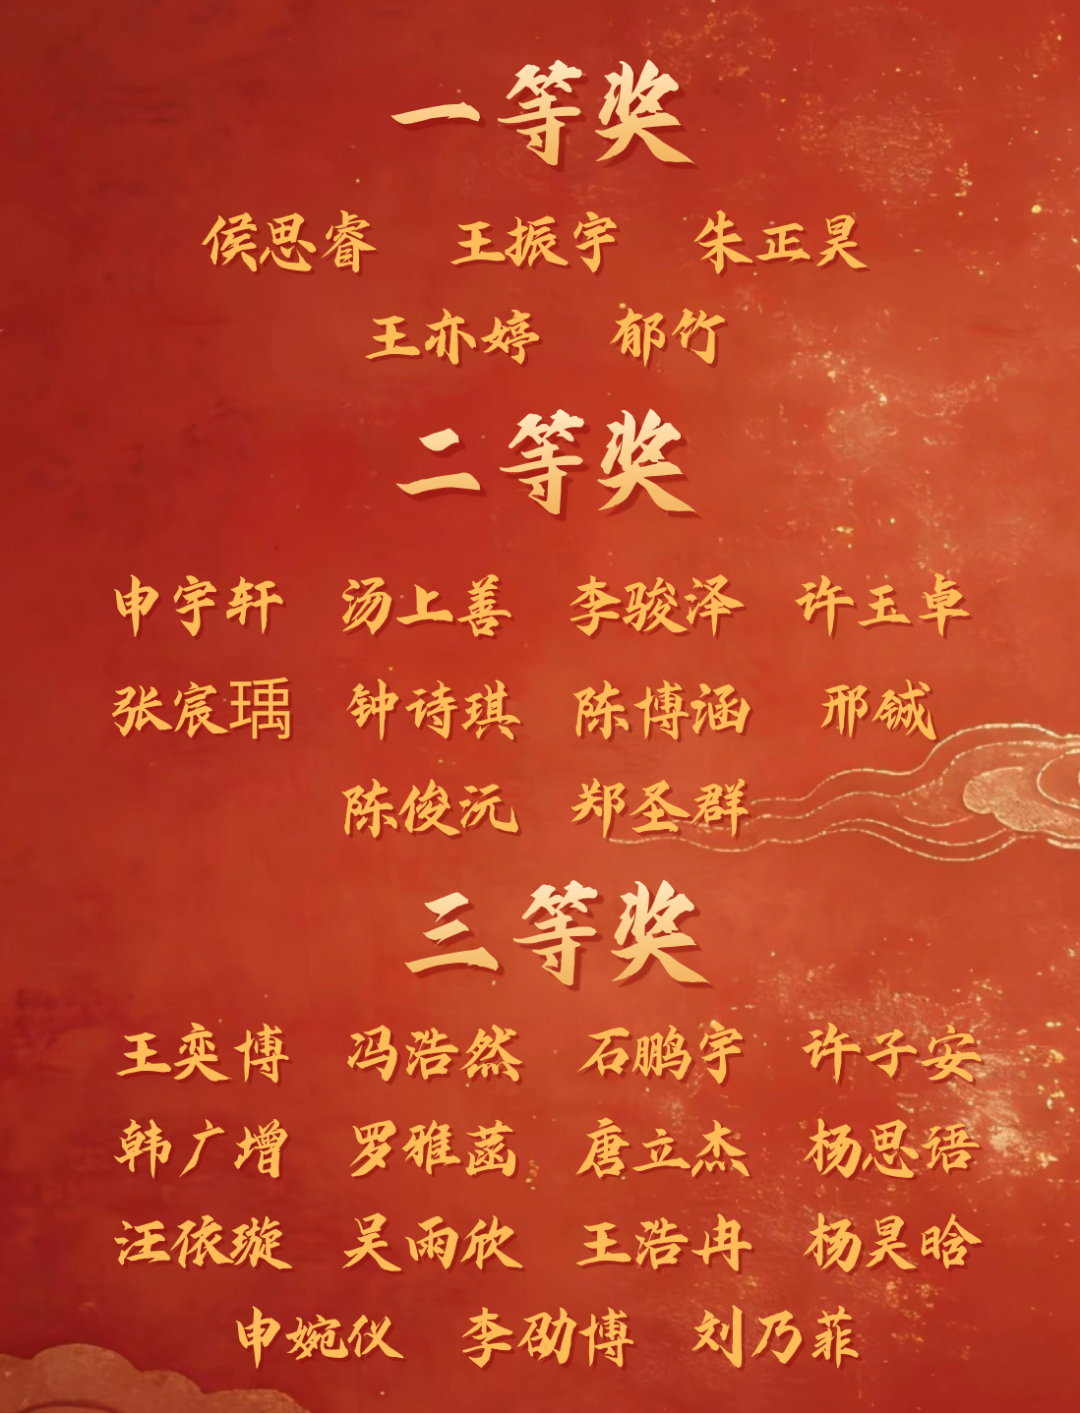 一等奖
侯思睿 王振宇 朱正昊
王亦婷 郁竹
二等奖
申宇轩 汤上善 李骏泽 许玉卓
张宸瑀 钟诗琪 陈博涵 邢铖
陈俊沅 郑圣群
三等奖
王奕博 冯浩然 石鹏宇 许子安
韩广增 罗雅菡 唐立杰 杨思语
汪依璇 吴雨欣 王浩冉 杨昊晗
申婉仪 李劭博 刘乃菲